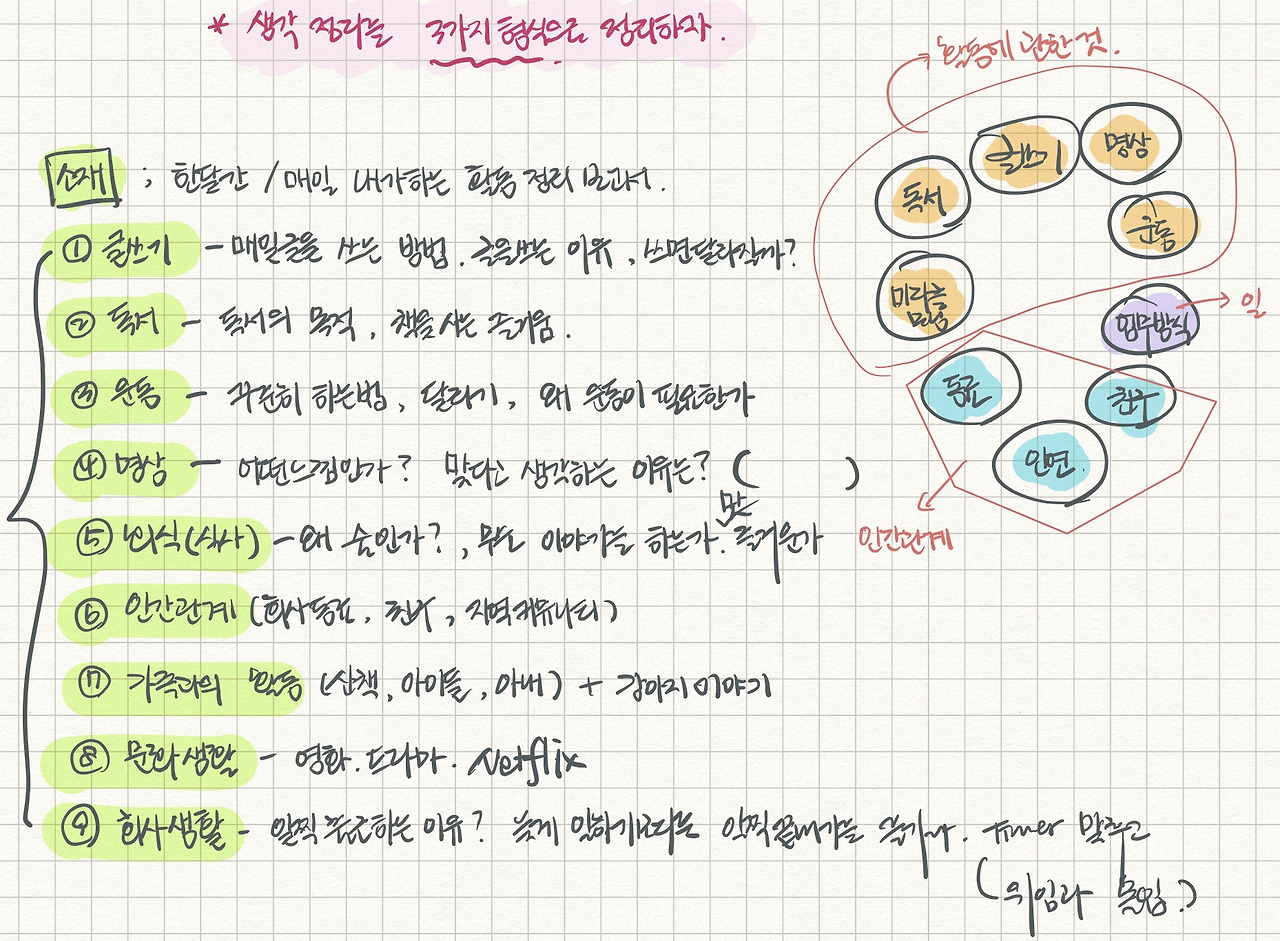 * 생각 정리를 3가지 형식으로 정리하자.
소재 ; 한달간 / 매일 내가하는 활동 정리 보고서.
① 글쓰기 - 매일글을 쓰는 방법. 글을쓰는 이유, 쓰면달라질까?
② 독서 - 독서의 목적, 책을 사는 즐거움.
③ 운동 - 꾸준히 하는법, 달리기, 왜 운동이 필요한가
④ 명상 - 어떤느낌인가? 맞다고 생각하는 이유는? ( )
⑤ 외식(식사) - 왜 술인가?, 무슨 이야기를 하는가. 맛 즐거운가
⑥ 인간관계 (회사동료, 친구, 지역커뮤니티)
⑦ 가족과의 활동 (산책, 아이들, 아내) + 강아지이야기
⑧ 문화생활 - 영화. 드라마. Netflix
⑨ 회사생활 - 일찍 출근하는 이유? 늦게 일하기보다는 일찍끝내기를 timer 맞추고
(위임과 몰입.)
활동에 관한 것.
독서
글쓰기
명상
운동
미라클 모닝
업무방식 → 일
동료
친구
인연.
인간관계